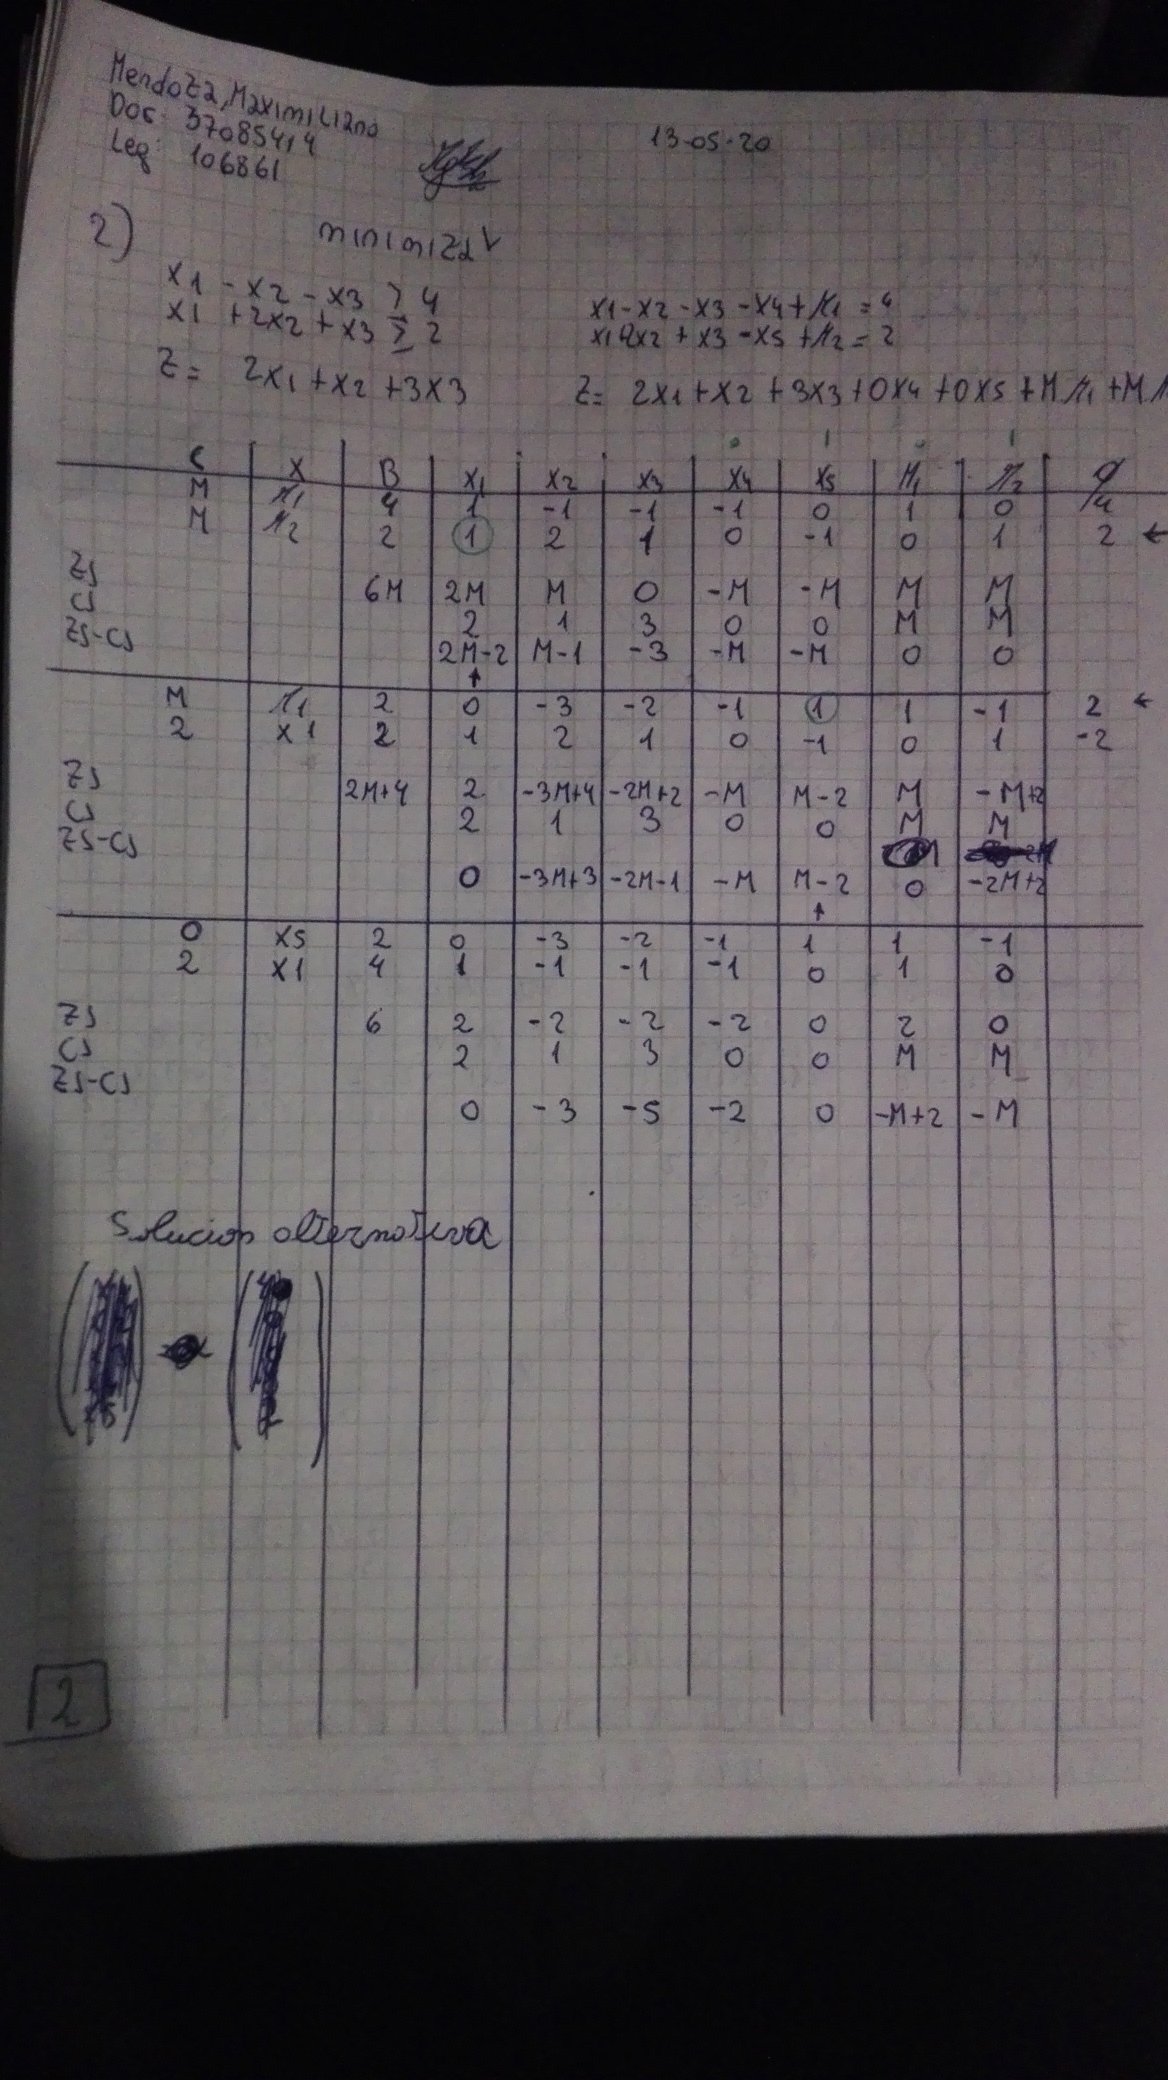 Mendoza, Maximiliano
Doc: 37085414
Leg: 106861
13-05-20
2)
minimizar
x1 - x2 - x3 ≥ 4
x1 + 2x2 + x3 ≥ 2
Z = 2x1 + x2 + 3x3
x1 - x2 - x3 - x4 + μ1 = 4
x1+2x2 + x3 - x5 + μ2 = 2
Z = 2x1 + x2 + 3x3 + 0x4 + 0x5 + Mμ1 + M
C X B x1 x2 x3 x4 x5 μ1 μ2 θ
M μ1 4 1 -1 -1 -1 0 1 0 4
M μ2 2 1 2 1 0 -1 0 1 2 ←
ZJ 6M 2M M 0 -M -M M M
CJ 2 1 3 0 0 M M
ZJ-CJ 2M-2 M-1 -3 -M -M 0 0
↑
M μ1 2 0 -3 -2 -1 1 1 -1 2 ←
2 x1 2 1 2 1 0 -1 0 1 -2
ZJ 2M+4 2 -3M+4 -2M+2 -M M-2 M -M+2
CJ 2 1 3 0 0 M M
ZJ-CJ 0 -3M+3 -2M-1 -M M-2 0 -2M+2
↑
0 x5 2 0 -3 -2 -1 1 1 -1
2 x1 4 1 -1 -1 -1 0 1 0
ZJ 6 2 -2 -2 -2 0 2 0
CJ 2 1 3 0 0 M M
ZJ-CJ 0 -3 -5 -2 0 -M+2 -M
Solucion alternativa
2